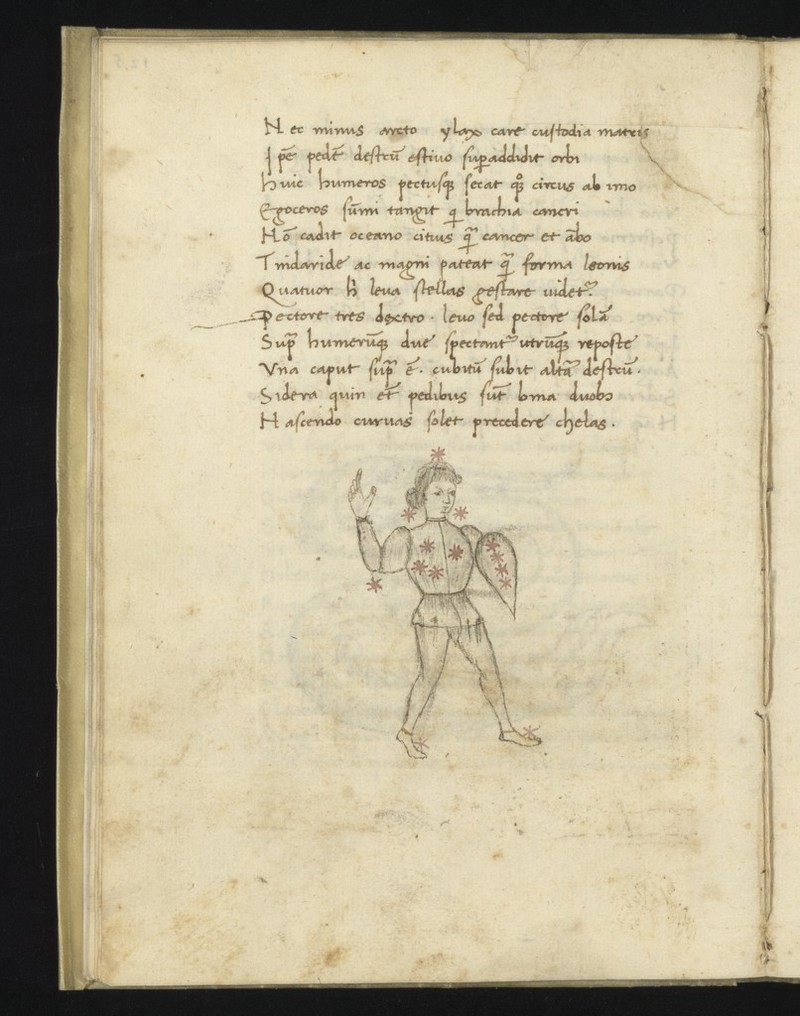 Nec minus arcto ylax care custodia matris
Ip̄e pedē destrū estiuo sup̱addidit orbi
Huic humeros pectusqꝫ secat qꝫ̊ circus ab imo
Egoceros sūmi tangit q brachia cancri
Hō cadit oceano citius q̄ᷓ cancer et ābo
Tnidaridē ac magni pateat q̄ᷓ forma leonis
Quatuor h̄ leua stellas gestare uidetᷣ
Pectore tres dextro . leuo sed pectore solā
Supᷓ humerūqꝫ due spectantᷣ utrūqꝫ reposte
Vna caput supᷓ ē . cubitū subit altᷓa destrū .
Sidera quin et̄ pedibus sūt bina duobꝫ
Hascendo curuas solet precedere chelas .